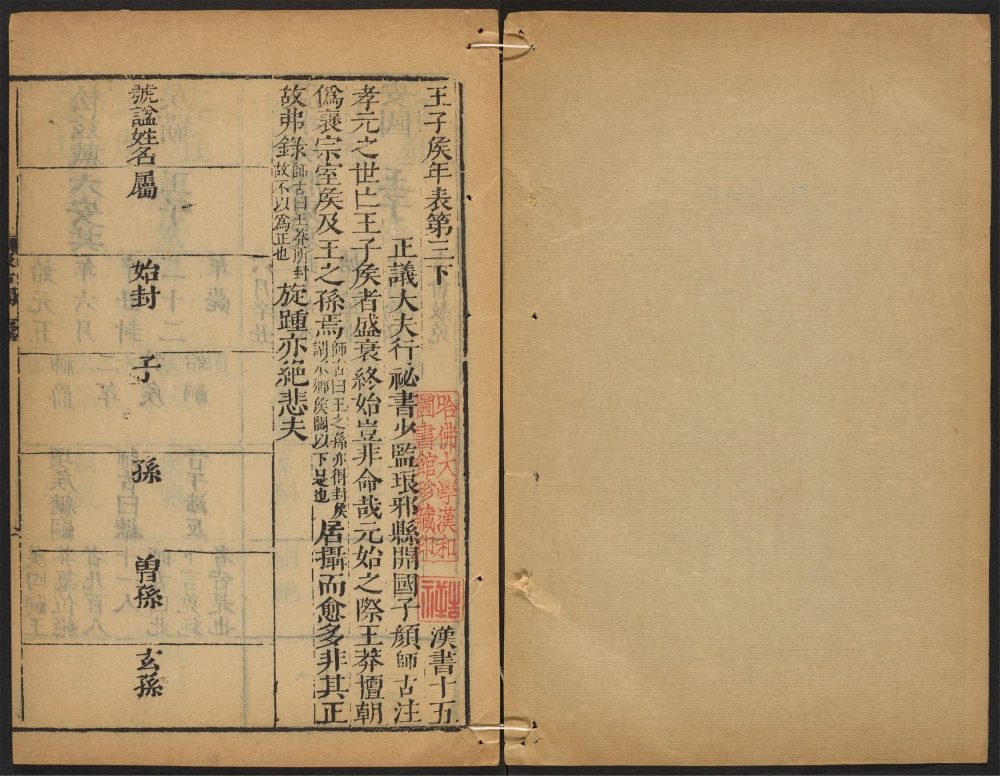 王子矦年表第三下　漢書十五
正議大夫行祕書少監琅邪縣開國子顔師古注
孝元之世亡王子矦者盛衰終始豈非命哉元始之際王莽擅朝
僞襃宗室矦及王之孫焉師古曰王之孫亦得封矦謂承鄉矦閎以下是也居攝而愈多非其正
故弗錄師古曰王莽所封故不以爲正也旋踵亦絶悲夫
號諡姓名
屬
始封
子
孫
曾孫
玄孫
哈佛大學漢和
圖書館珍藏印